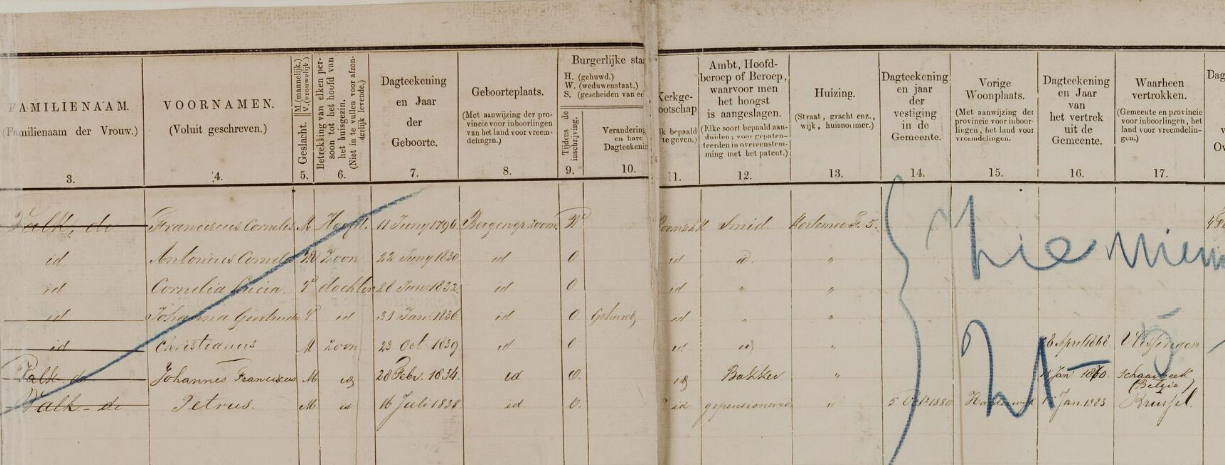 FAMILIENAAM.
(Familienaam der Vrouw.)
3.
VOORNAMEN.
(Voluit geschreven.)
4.
Geslacht.
M. (mannelijk.)
V. (vrouwelijk.)
5.
Betrekking van elken per-
soon tot het hoofd van
het huisgezin.
(Niet in te vullen voor afzon-
derlijk levende.)
6.
Dagteekening
en Jaar
der
Geboorte.
7.
Geboorteplaats.
(Met aanwijzing der pro-
vincie voor inboorlingen
van het land voor vreem-
delingen.)
8.
Burgerlijke sta
H. (gehuwd.)
W. (weduwenstaat.)
S. (gescheiden van ec
Tijdens de
inschrijving.
9.
Verandering
en hare
Dagteekenin
10.
Kerkge-
ootschap
k bepaald
te geven.)
11.
Ambt, Hoofd-
beroep of Beroep,
waarvoor men
het hoogst
is aangeslagen.
(Elke soort bepaald aan-
duiden; voor gepaten-
teerden in overeenstem-
ming met het patent.)
12.
Huizing.
(Straat, gracht enz.,
wijk, huisnommer.)
13.
Dagteekening
en jaar
der
vestiging
in de
Gemeente.
14.
Vorige
Woonplaats.
(Met aanwijzing der
provincie voor inboor-
lingen, het land voor
vreemdelingen.
15.
Dagteekening
en Jaar
van
het vertrek
uit de
Gemeente.
16.
Waarheen
vertrokken.
(Gemeente en provincie
voor inboorlingen, het
land voor vreemdelin-
gen.)
17.
Dag
Ov
Valk, de Franciscus Cornelis M Hoofd. 11 Juny 1796 Bergenopzoom W Smid 5.
id Antonius Corneli M Zoon 22 Juny 1830 id O id "
id Cornelia Lucia V dochter 1832 id O id " "
id Johanna V id 1836 id O Gehuwd id " "
id Christianus M Zoon 23 Oct 1839 id O id id " April 1868 Vlissingen
Valk de Johannes Franciscus M id 28 Febr. 1834 id O. id Bakker " Jan 1860 Schaarbeek
(Belgie)
Valk de Petrus. M id 16 Juli 1838. id O. id gepensioneerd " 5 Oct 1880 Jan 1883 Brussel.
zie nieuw